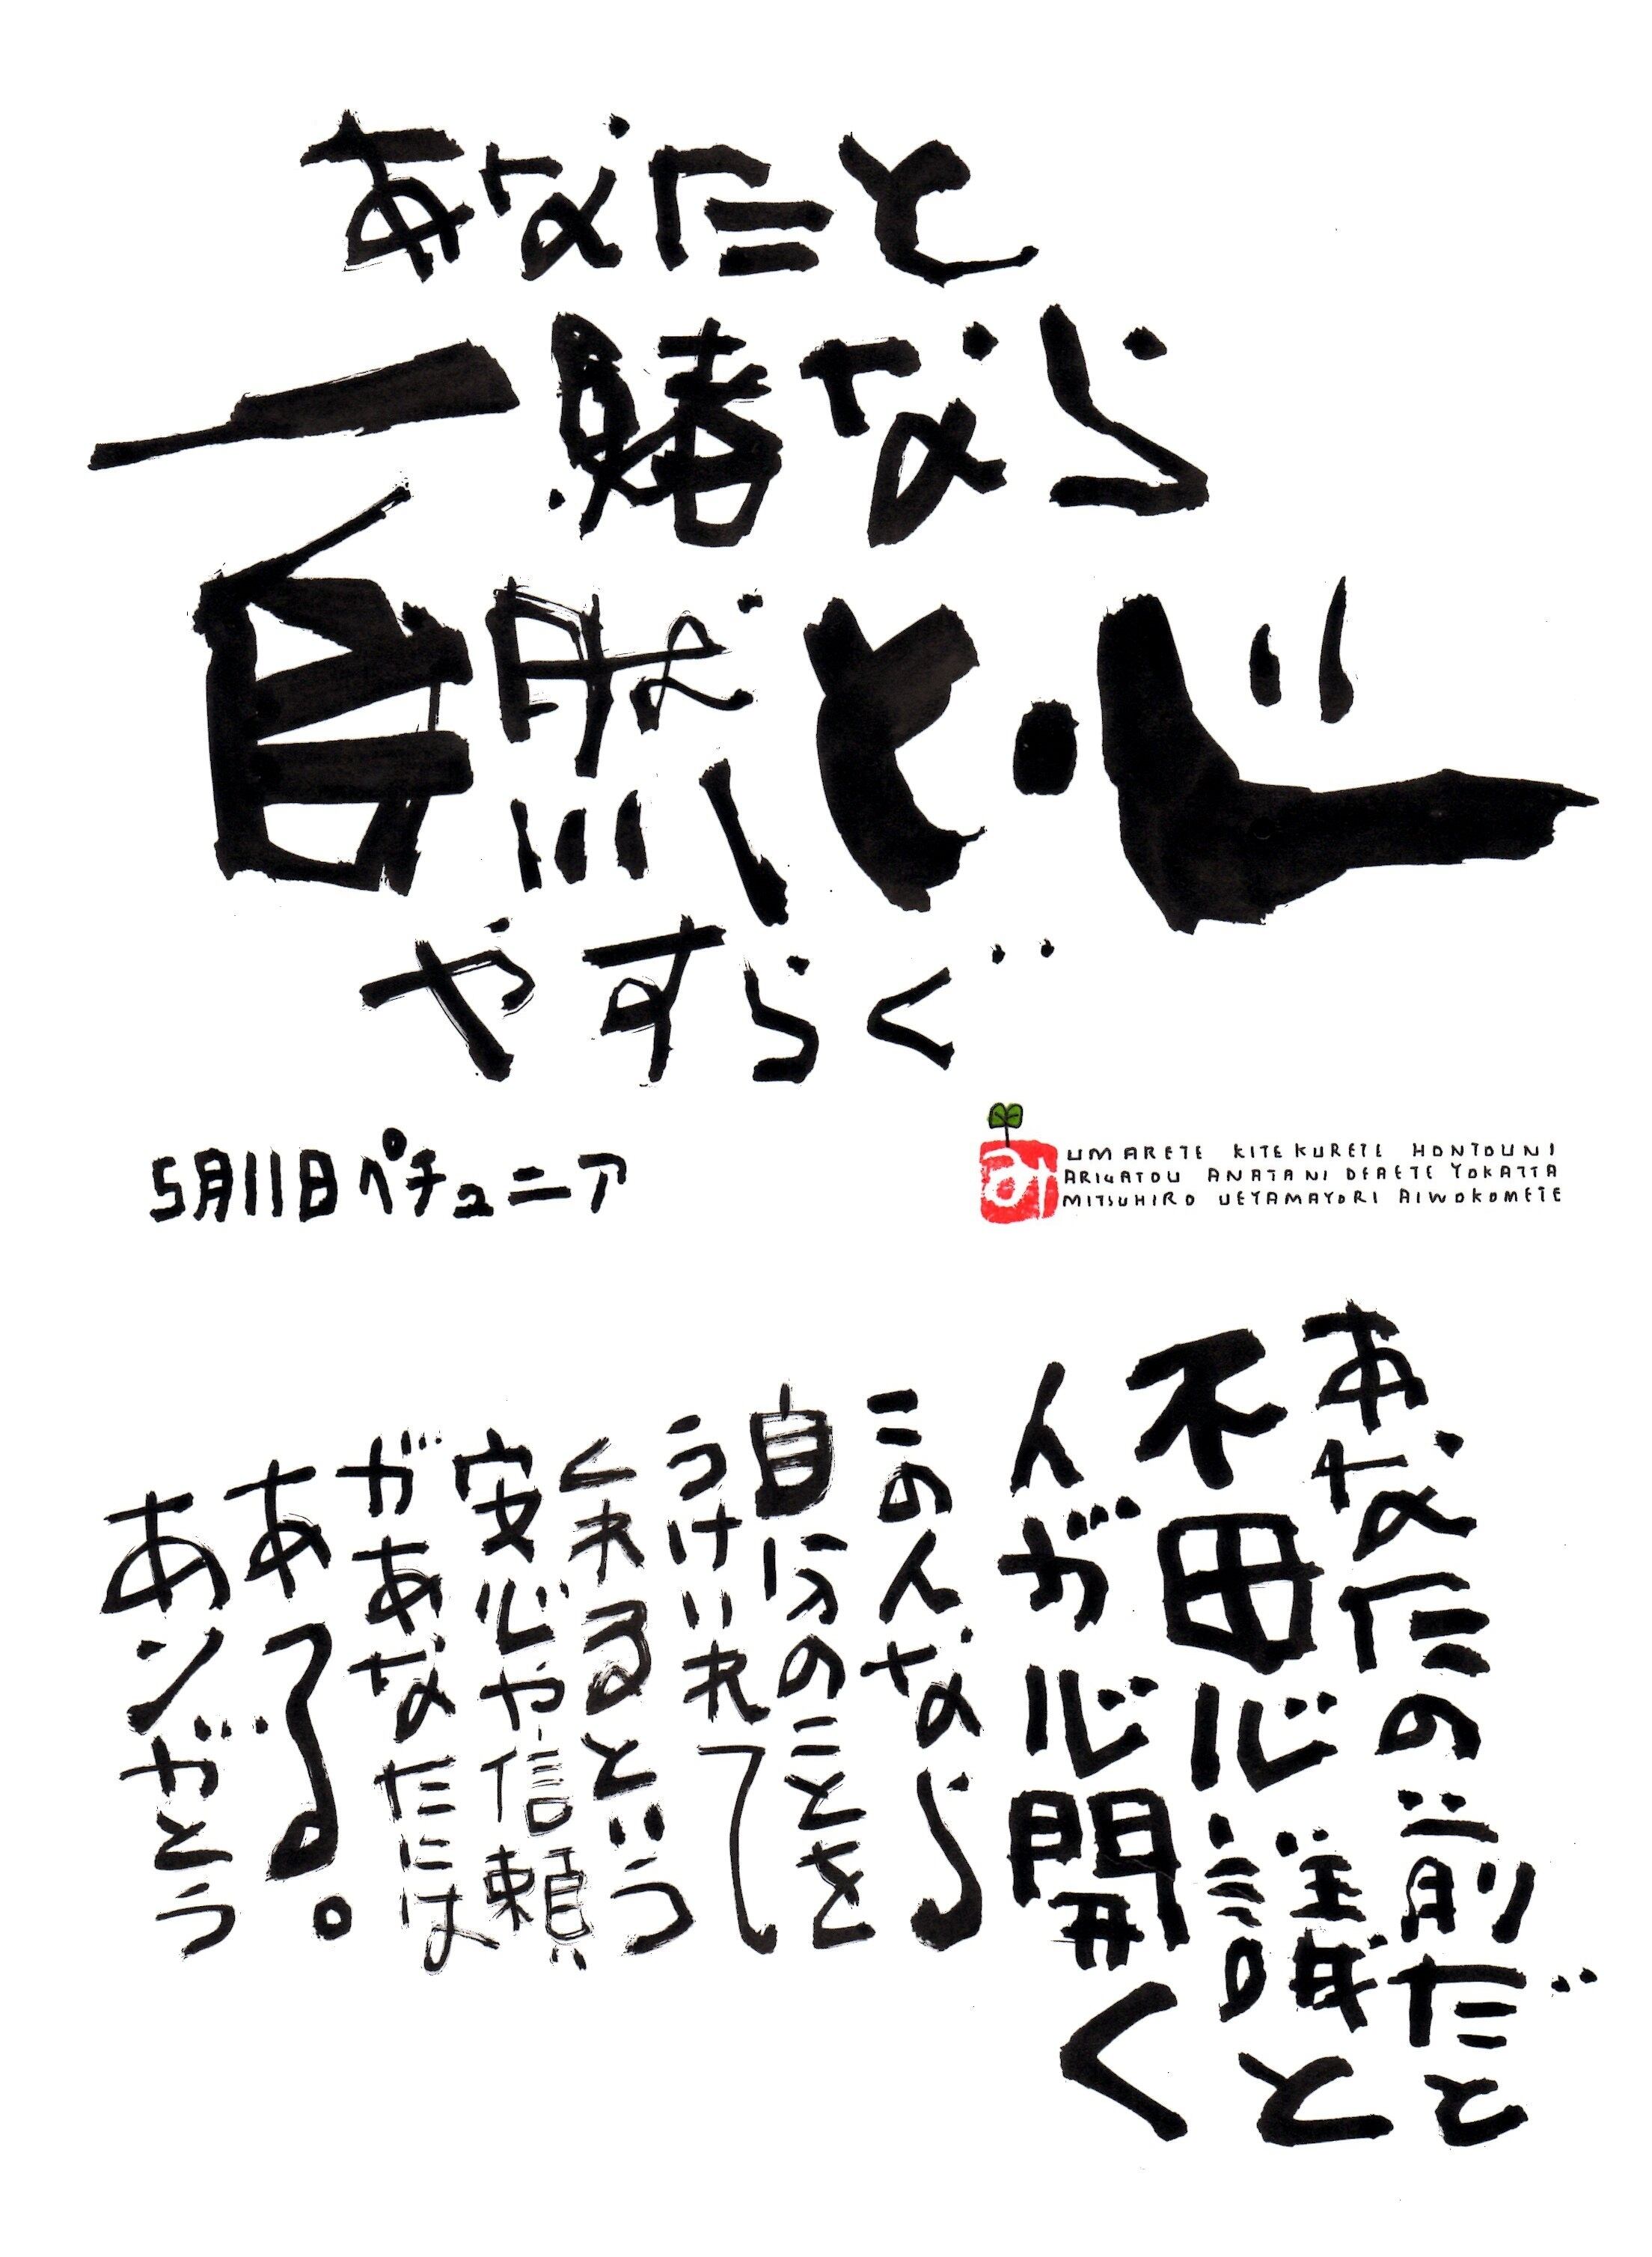 あなたと
一緒なら
自然と心
やすらぐ
5月11日ペチュニア
UMARETE KITEKURETE HONTOUNI
ARIGATOU ANATANI DEAETE YOKATTA
MITSUHIRO UEYAMAYORI AIWOKOMETE
あなたの前だと
不思議と
人が心開く
この人なら
自分のことを
うけいれて
くれるという
安心や信頼
があなたには
ある。
ありがとう